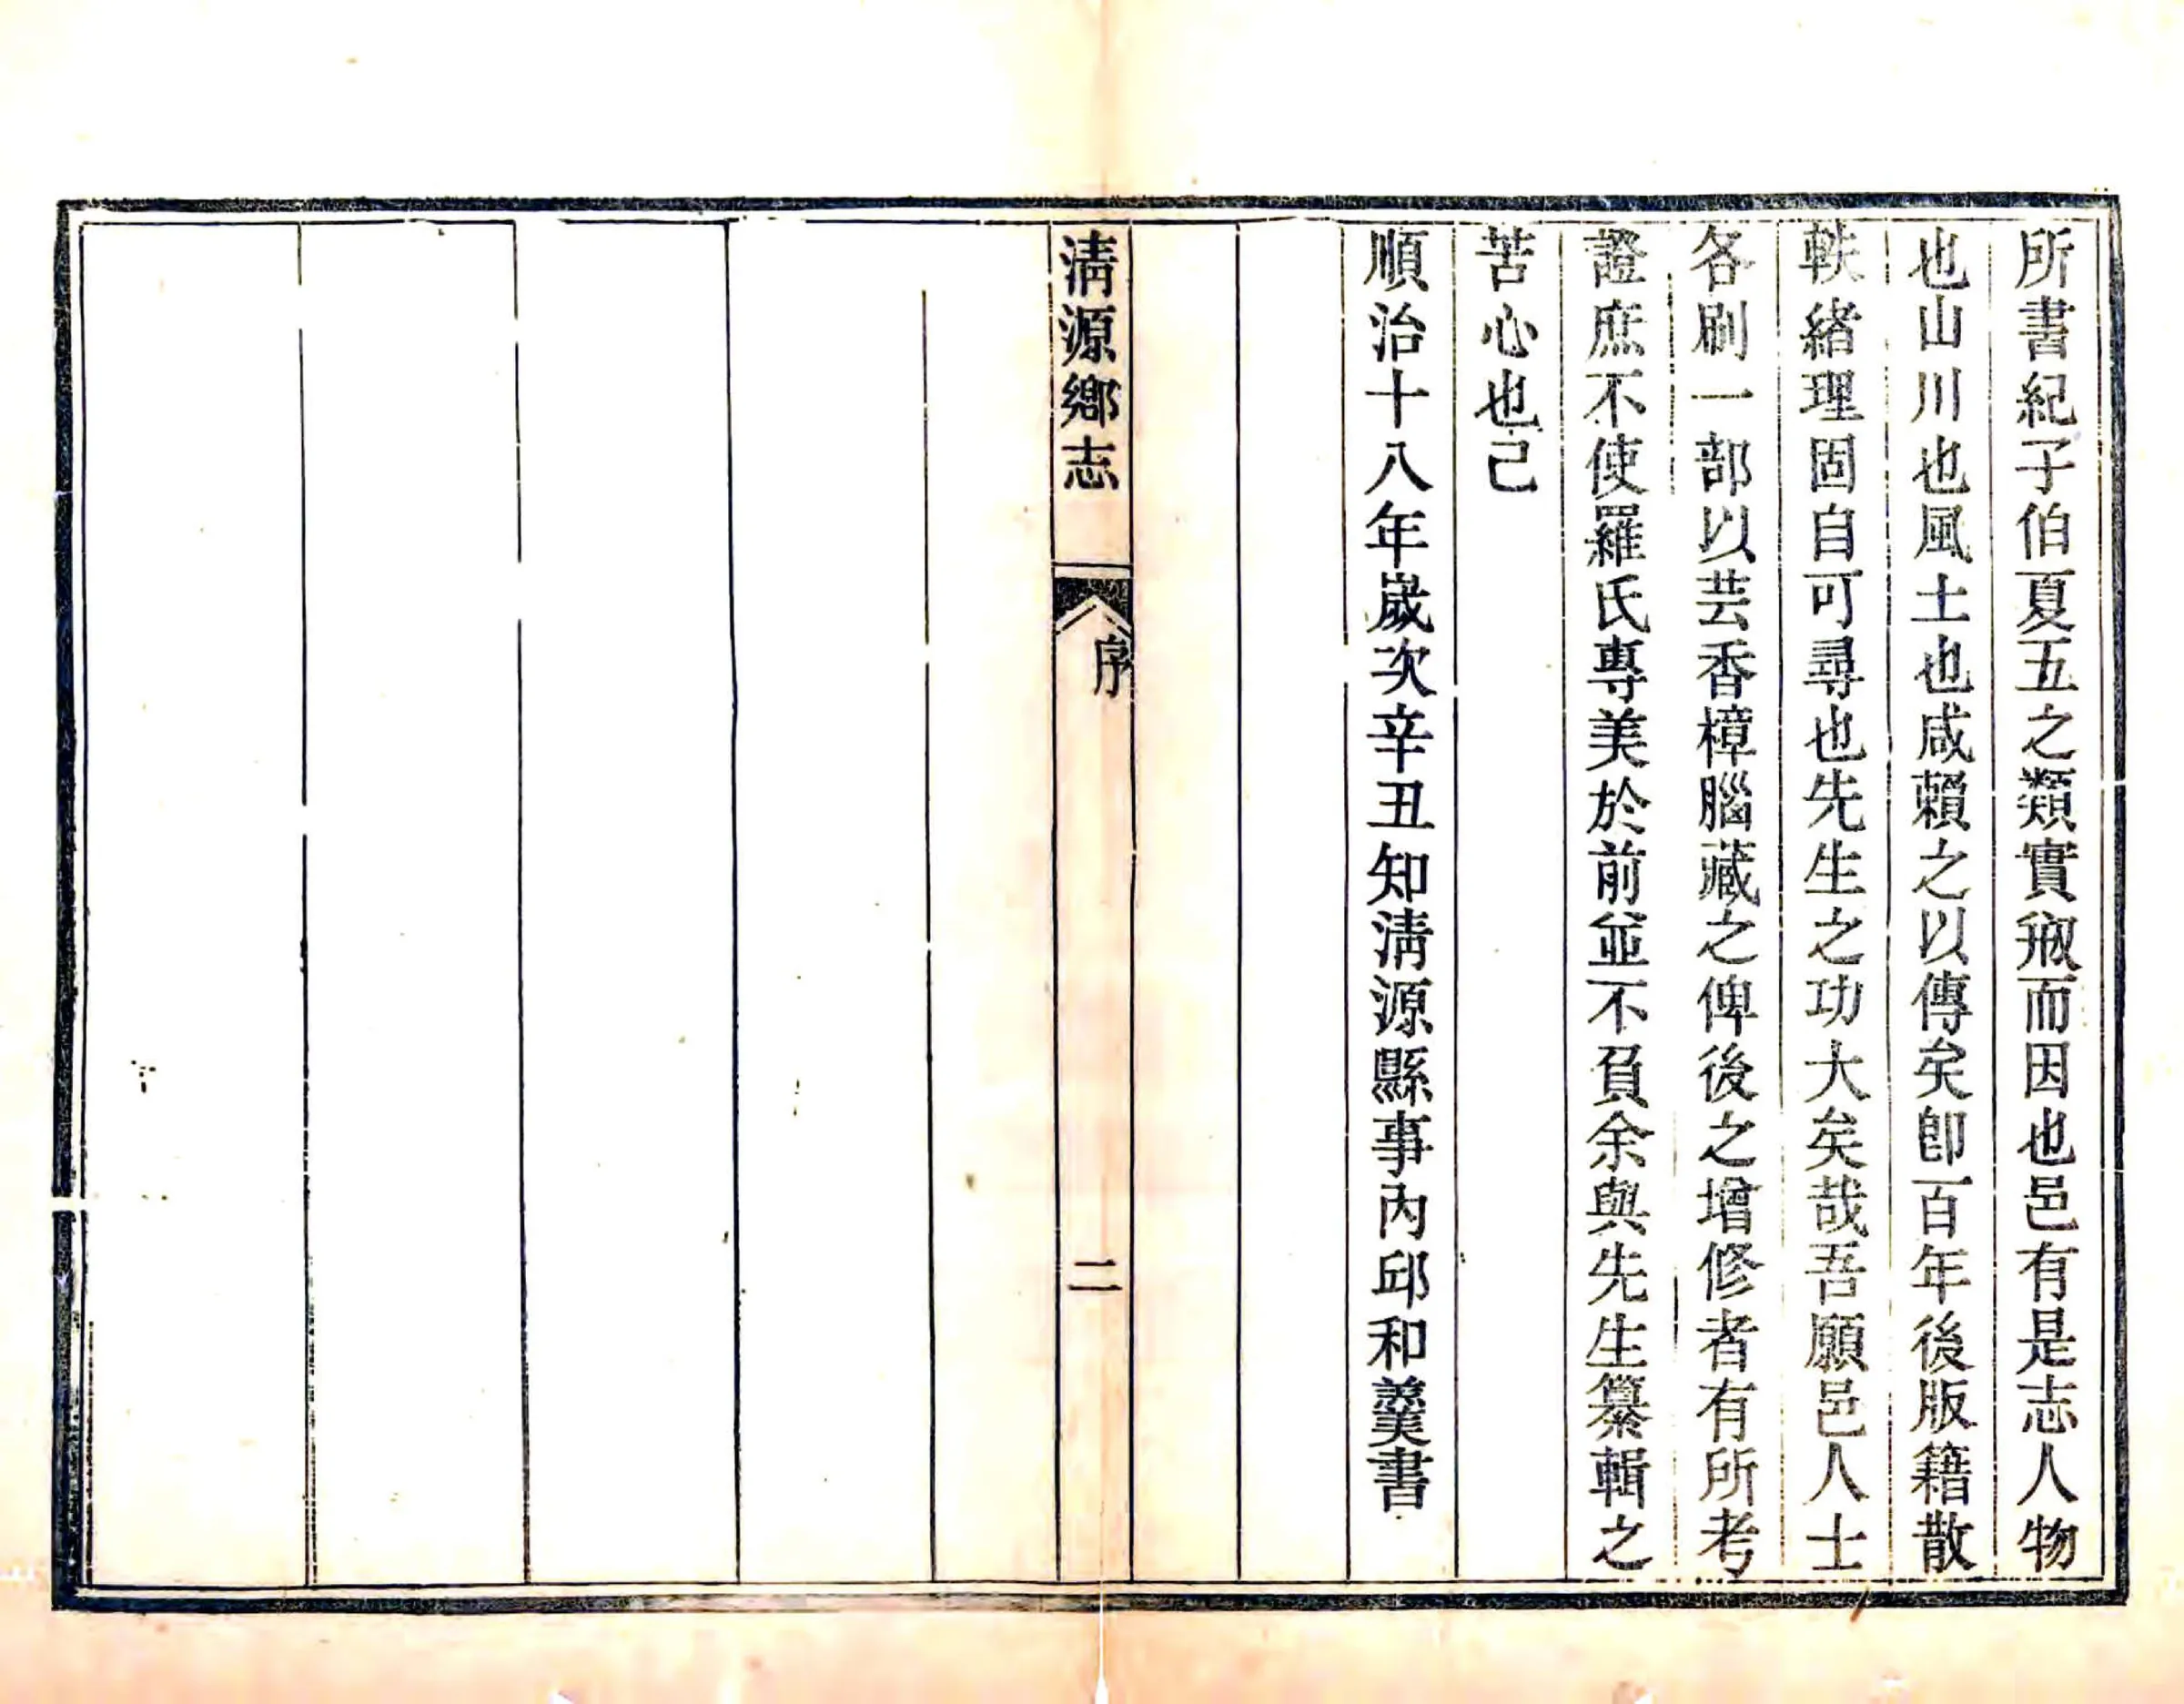 所書紀子伯夏五之類實祓而因也邑有是志人物
也山川也風土也咸賴之以傳矣卽百年後版籍散
軼緒理固自可尋也先生之功大矣哉吾願邑人士
各刷一部以芸香樟腦藏之俾後之增修者有所考
證庶不使羅氏專美於前並不負余與先生纂輯之
苦心也己
順治十八年歲次辛丑知清源縣事內邱和羹書
清源鄉志
序
二